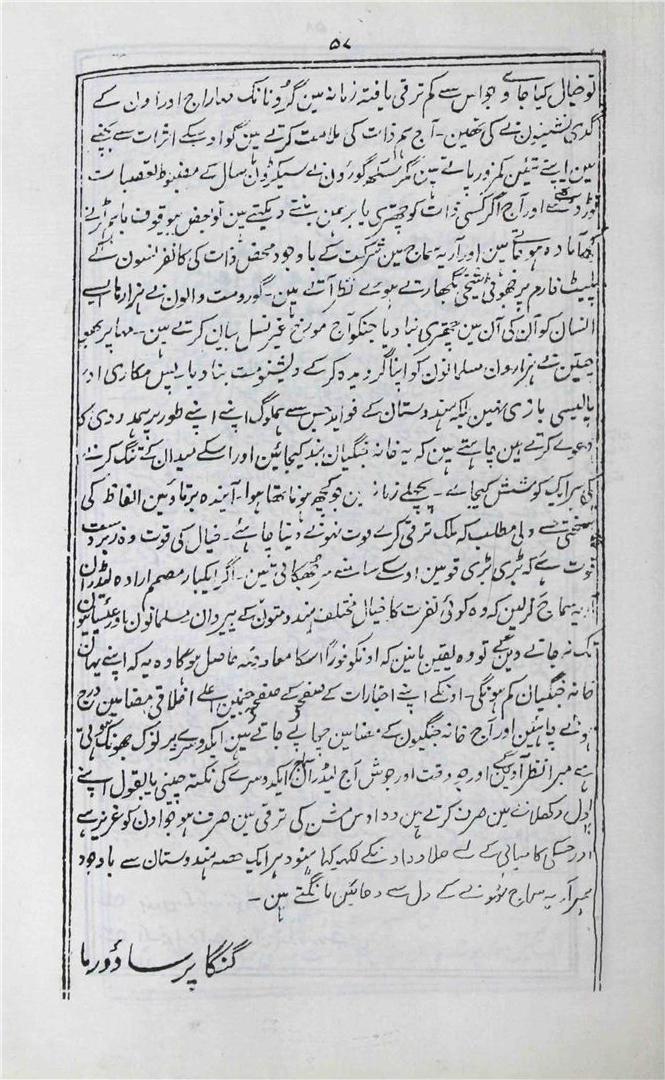 ۵۷
تو خیال کیا جاوے جو اس سے کم ترقی یافتہ زمانہ مین گرو نانک مہاراج اور اون کے
گدی نشینون نے کی تھین - آج ہم ذات کی ملامت کرتے ہین گو اوسکے اثرات سے بچنے
مین اپنے تئین کمزور پاتے ہین مگر سکھ گوروُن نے سیکڑون سال کے مضبوط تعصبات
توڑ دئے اور آج اگر کسی ذات کو چھتری یا برہمن بنتے دیکھتے ہین تو بعض بیوقوف
آمادہ ہو جاتے ہین اور آریہ سماج مین شرکت کے باوجود محض ذات کی کانفرنسون کے
پلیٹ فارم پر جھوٹی شیخی بگھارتے ہوئے نظر آتے ہین - گورومت والون نے ہزارہا ایسے
انسان کو آن کی آن مین چھتری بنا دیا جنکو آج مورخ غیر نسل بیان کرتے ہین - مہاپربھو
چیتن نے ہزارون مسلمانون کو اپنا گرویدہ کر کے ویشنومت بنا دیا پس مکاری اور
پالیسی بازی نہین بلکہ ہندوستان کے فوائد جس سے ہملوگ اپنے اپنے طور پر ہمدردی کا
دعوے کرتے ہین چاہتے ہین کہ یہ خانہ جنگیان بند کیجائین اور اسکے میدان کے تنگ کرنے
کی ہر ایک کوشش کیجائے - پچھلے زمانہ مین جو کچھ ہونا تھا ہوا - آیندہ برتاو مین الفاظ کی
سختی سے دلی مطلب کہ ملک ترقی کرے فوت نہونے دینا چاہئے - خیال کی قوت وہ زبردست
قوت ہے کہ بڑی بڑی قومین اوسکے سامنے سر جھکاتی ہین - اگر ایکبار مصمم ارادہ لیڈران
آریہ سماج کر لین کہ وہ کوئی نفرت کا خیال مختلف ہندو متون کے پیروان مسلمانون اور عیسائیون
تک نہ جانے دینگے تو وہ یقین مانین کہ اونکو فوراً اسکا معاوضہ حاصل ہوگا وہ یہ کہ اپنے یہان
خانہ جنگیان کم ہونگی - اونکے اپنے اخبارات کے صفحے کے صفحے جنمین اعلے اخلاقی مضامین درج
ہونے چاہئین اور آج خانہ جنگیون کے مضامین چھاپے جاتے ہین ایکدوسرے پر نوک جھونک ہوتی
ہے مبرا نظر آوینگے اور جو وقت اور جوش آج لیڈران آج ایکدوسرے کی نکتہ چینی یا بقول اپنے
دل دکھلانے مین صرف کرتے ہین وہ اوس مشن کی ترقی مین صرف ہو جو اون کو عزیز ہے
اور جسکی کامیابی کے لے علاوہ اونکے لکھہا ہنود ہر ایک حصہ ہندوستان سے باوجود
ممبر آریہ سماج نہونے کے دل سے دعائین مانگتے ہین -
گنگا پرساد ورما